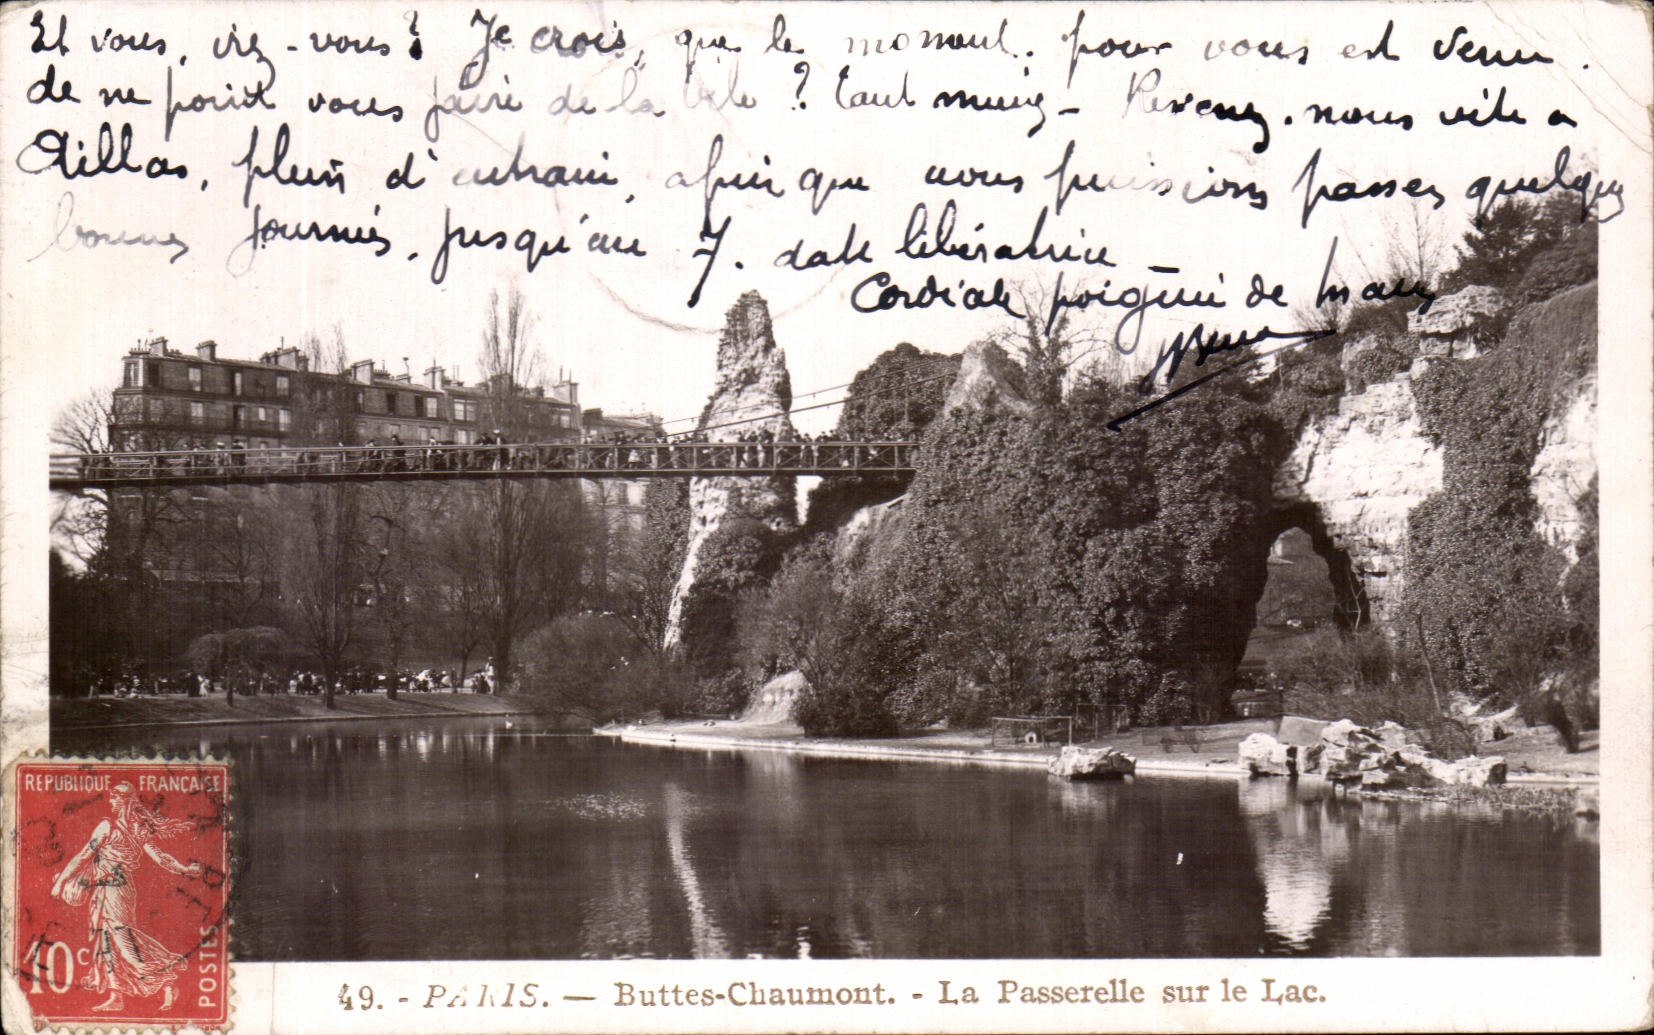 Et vous, irez-vous? Je crois, que le moment. pour vous est venu.
de ne point vous faire de la bile? tant mieux - Revenez. nous vite a
Aillas, plein d'entrain, afin que nous puissions passer quelques
bonnes journées, jusqu'au 7. date libératrice -
Cordiale poignée de main
REPUBLIQUE FRANÇAISE
10 c POSTES
49. - PARIS. — Buttes-Chaumont. - La Passerelle sur le Lac.